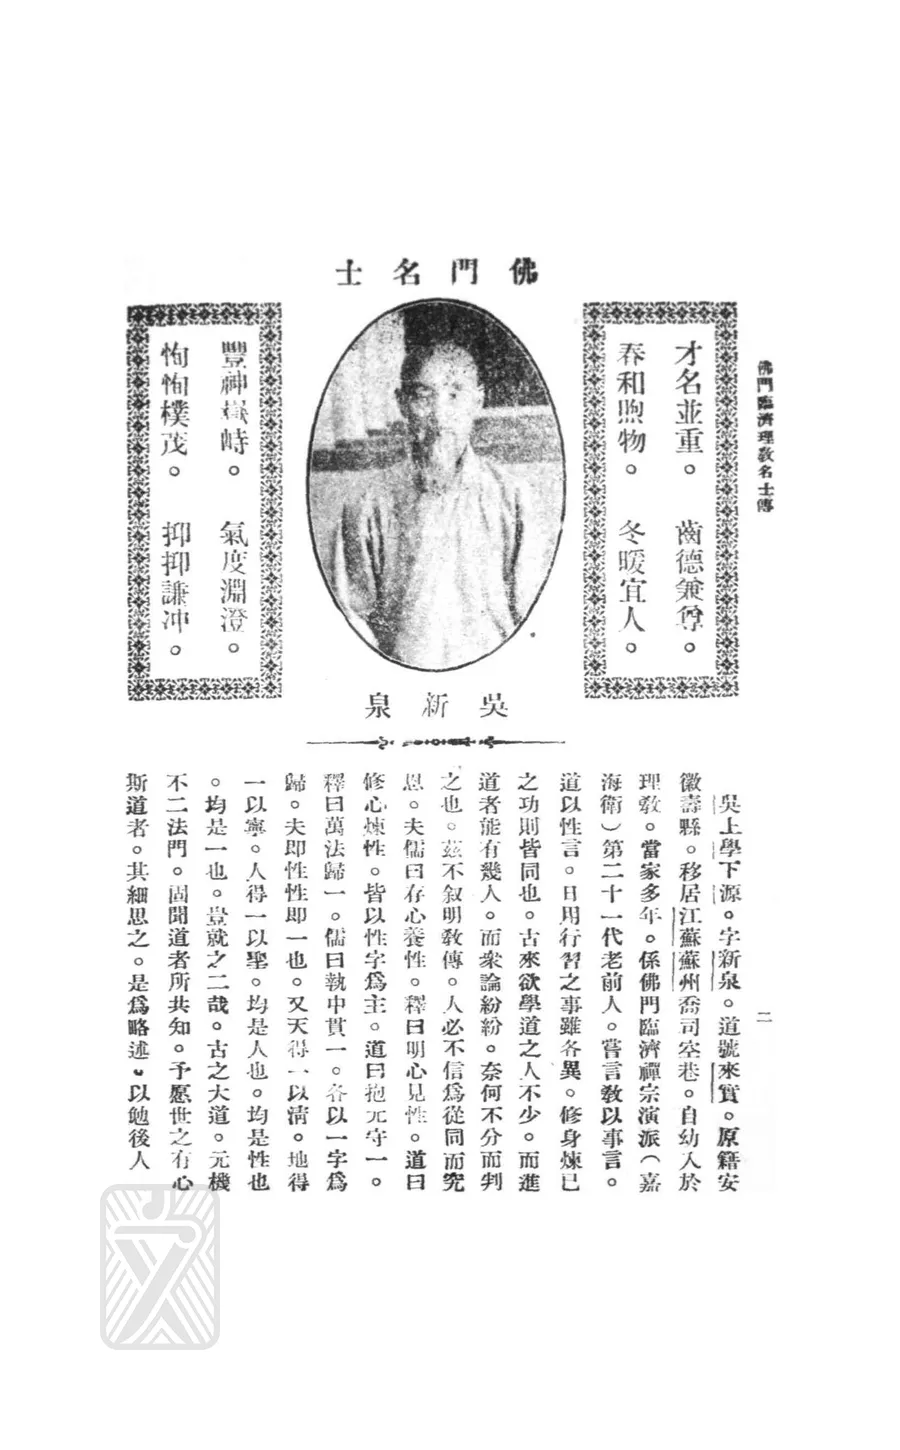 佛門臨濟理教名士傳
二
佛門名士
才名並重。 齒德兼尊。
春和煦物。 冬暖宜人。
豐神嶽峙。 氣度淵澄。
恂恂樸茂。 抑抑謙冲。
吳新泉
吳上學下源。字新泉。道號來實。原籍安
徽壽縣。移居江蘇蘇州喬司空巷。自幼入於
理教。當家多年。係佛門臨濟禪宗演派（嘉
海衛）第二十一代老前人。嘗言教以事言。
道以性言。日用行習之事雖各異。修身煉己
之功則皆同也。古來欲學道之人不少。而進
道者能有幾人。而衆論紛紛。奈何不分而判
之也。茲不叙明教傳。人必不信爲從同而究
思。夫儒曰存心養性。釋曰明心見性。道曰
修心煉性。皆以性字爲主。道曰抱元守一。
釋曰萬法歸一。儒曰執中貫一。各以一字爲
歸。夫即性性即一也。又天得一以清。地得
一以寧。人得一以聖。均是人也。均是性也
。均是一也。豈就之二哉。古之大道。元機
不二法門。固聞道者所共知。予愿世之有心
斯道者。其細思之。是爲略述。以勉後人